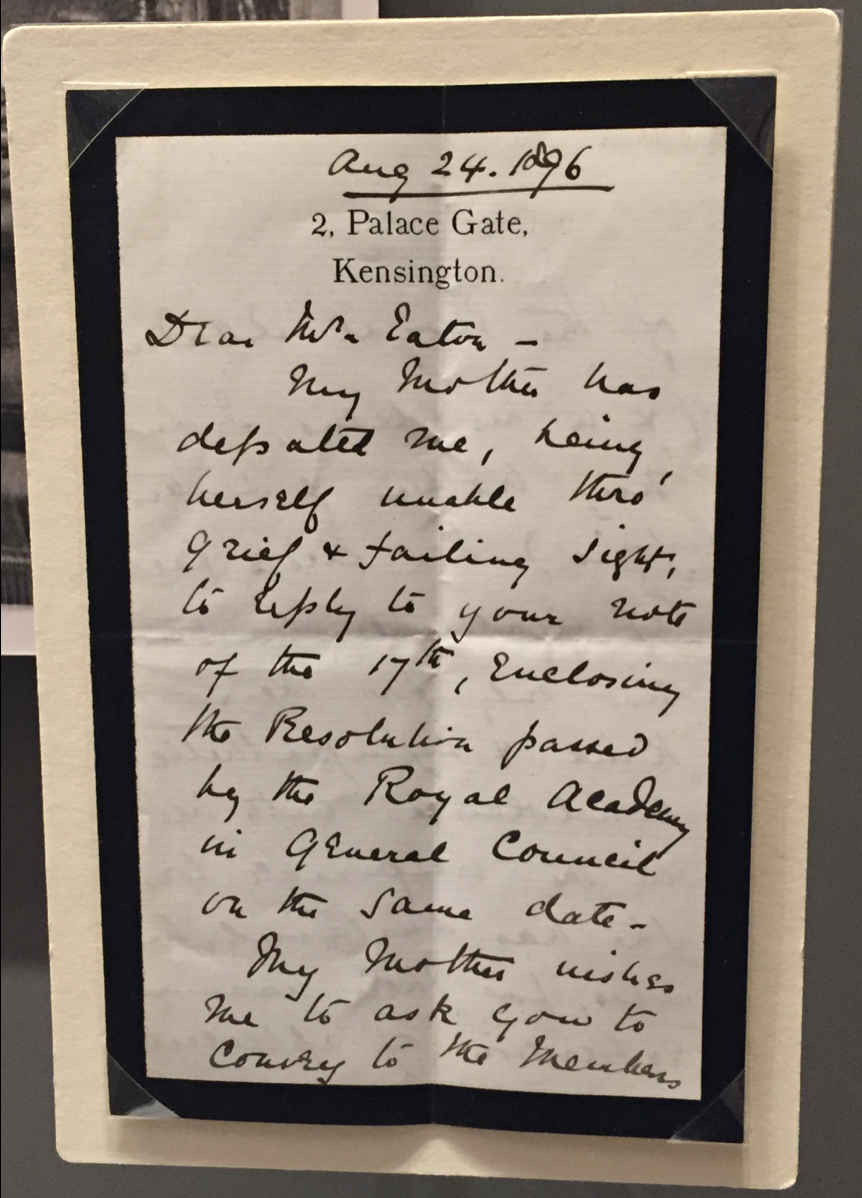 Aug 24. 1896
2, Palace Gate,
Kensington.
Dear Mr. Eaton –
My Mother has
deputed me, being
herself unable thro'
grief & failing sight,
to reply to your note
of the 17th, enclosing
the Resolution passed
by the Royal Academy
in General Council
on the same date –
My Mother wishes
me to ask you to
convey to the Members